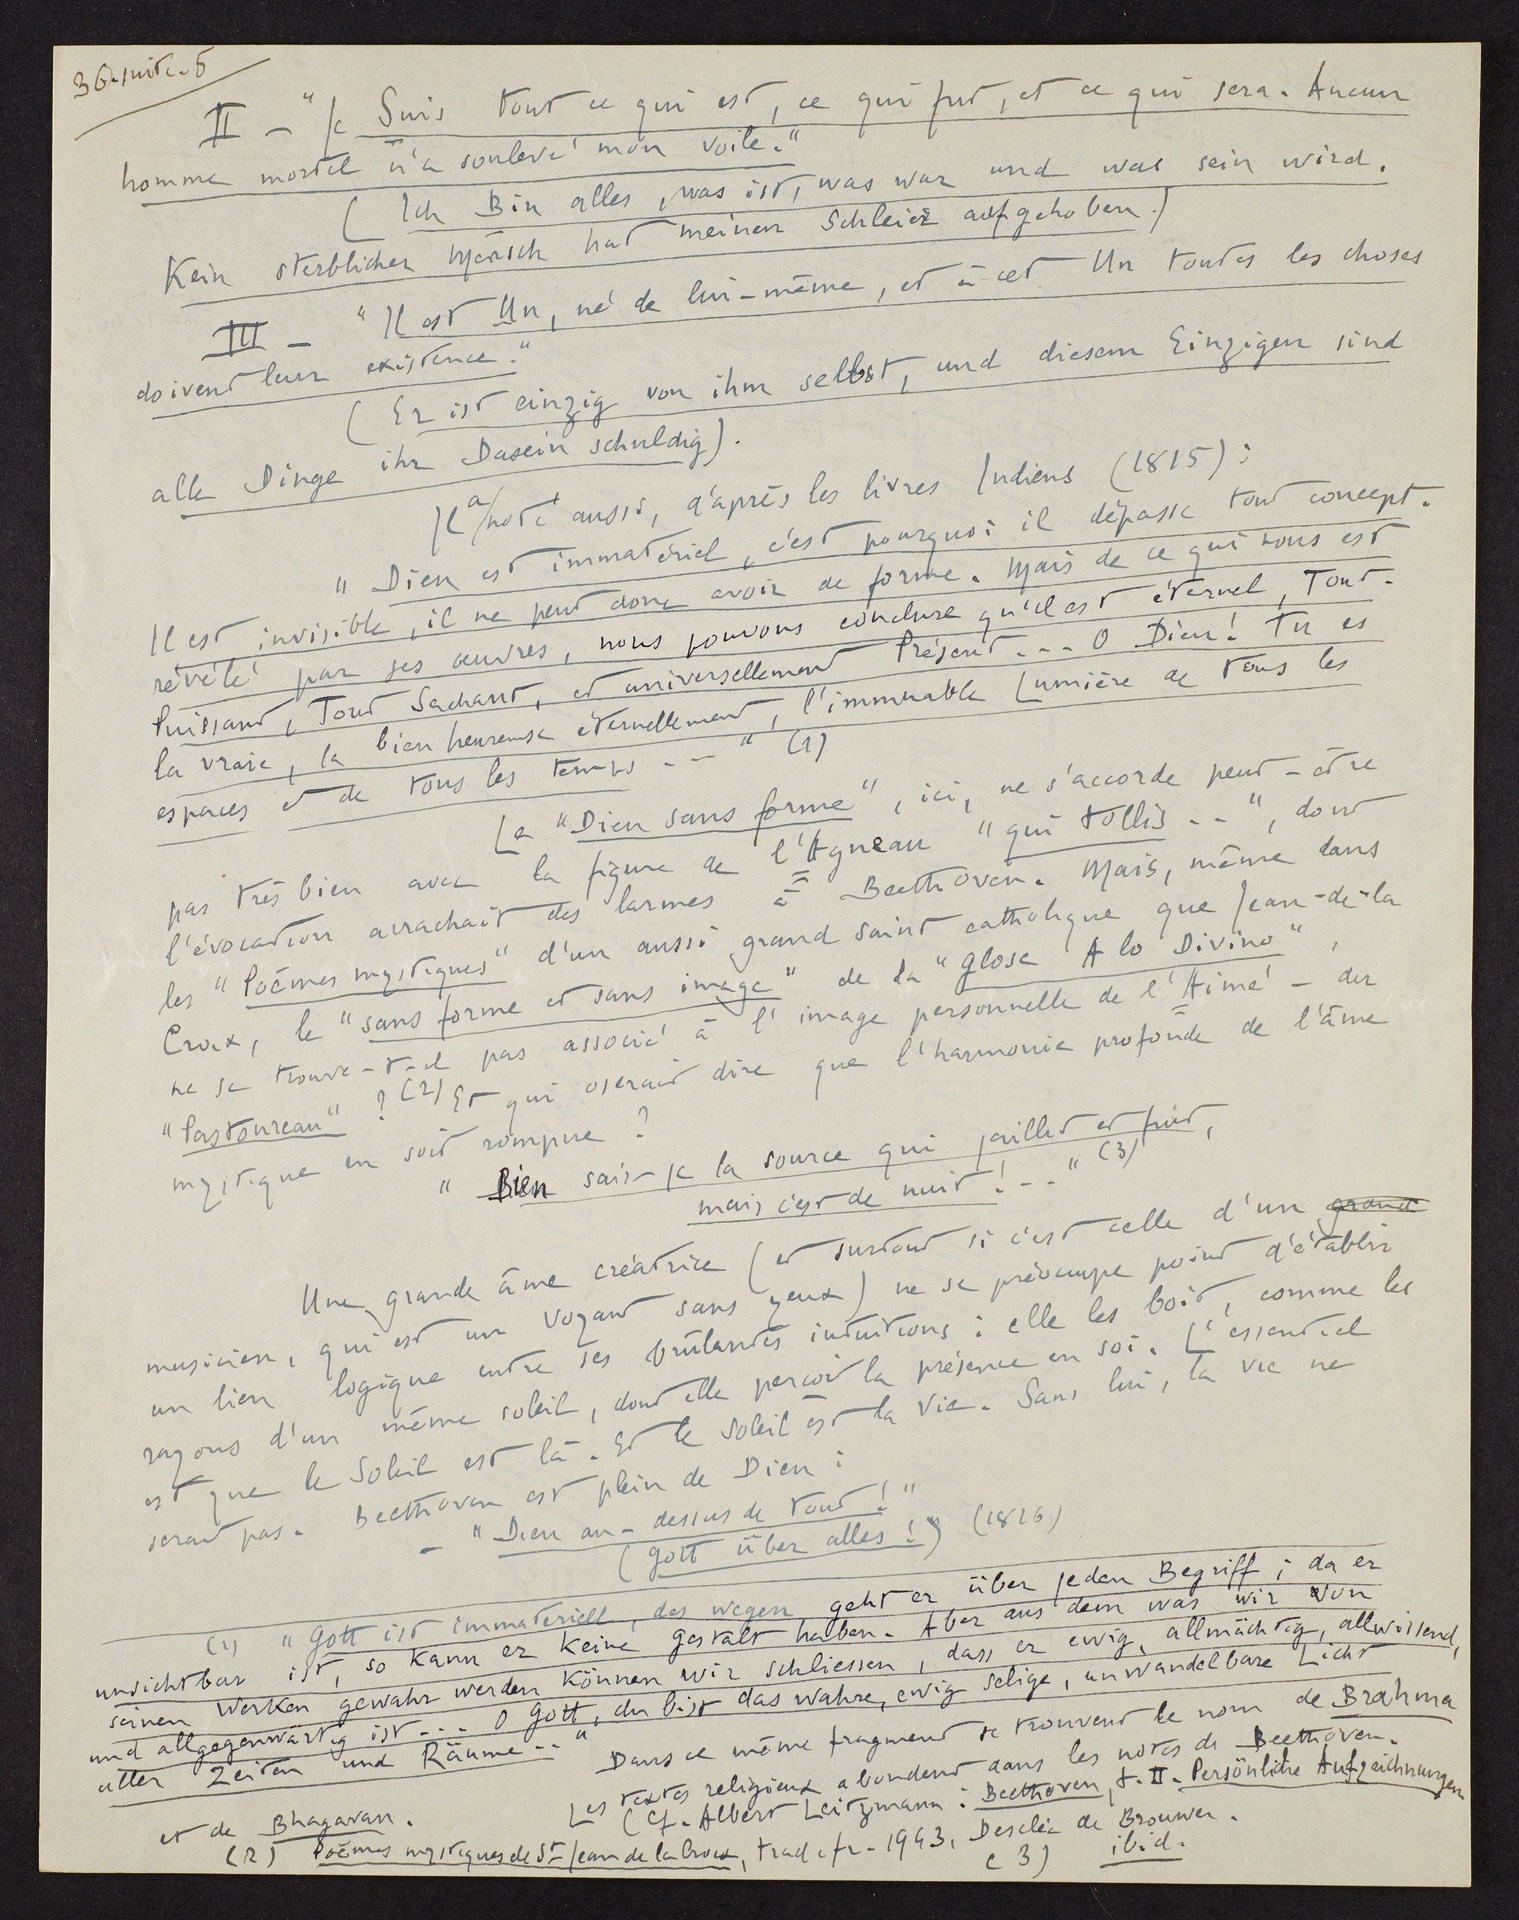 36-suite-6
II - "Je Suis tout ce qui est, ce qui fut, et ce qui sera. Aucun
homme mortel n'a soulevé mon voile."
(Ich Bin alles, was ist, was war und was sein wird.
Kein sterblicher Mensch hat meinen Schleier aufgehoben.)
III - "Il est Un, né de lui-même, et à cet Un toutes les choses
doivent leur existence."
(Er ist einzig von ihm selbst, und diesem Einzigen sind
alle Dinge ihr Dasein schuldig).
Il a noté aussi, d'après les livres Indiens (1815) :
"Dieu est immatériel, c'est pourquoi il dépasse tout concept.
Il est invisible, il ne peut donc avoir de forme. Mais de ce qui nous est
révélé par ses œuvres, nous pouvons conclure qu'il est éternel, Tout-
Puissant, Tout Sachant, et universellement Présent... O Dieu! Tu es
la vraie, la bienheureuse éternellement, l'immuable Lumière de tous les
espaces et de tous les temps..." (1)
Le "Dieu sans forme", ici, ne s'accorde peut-être
pas très bien avec la figure de l'Agneau "qui tollis..", dont
l'évocation arrachait des larmes à Beethoven. Mais, même dans
les "Poèmes mystiques" d'un aussi grand saint catholique que Jean-de-la
Croix, le "sans forme et sans image" de la "glose A lo Divino",
ne se trouve-t-il pas associé à l'image personnelle de l'Aimé - du
"Pastoureau" ? (2) Et qui oserait dire que l'harmonie profonde de l'âme
mystique en soit rompue ?
"Bien sais-je la source qui jaillit et fuit,
mais c'est de nuit!.." (3)
Une grande âme créatrice (et surtout si c'est celle d'un grand
musicien, qui est un voyant sans yeux) ne se préoccupe point d'établir
un lien logique entre ses brûlantes intuitions : elle les boit, comme les
rayons d'un même soleil, dont elle perçoit la présence en soi. L'essentiel
est que le Soleil est là. Et le Soleil est la Vie. Sans lui, la vie ne
serait pas. Beethoven est plein de Dieu :
- "Dieu au-dessus de tout!"
(Gott über alles!") (1816)
(1) "Gott ist immateriell, deswegen geht er über jeden Begriff ; da er
unsichtbar ist, so kann er keine Gestalt haben. Aber aus dem was wir von
seinen Werken gewahr werden können wir schliessen, dass er ewig, allmächtig, allwissend,
und allgegenwärtig ist... O Gott, du bist das wahre, ewig selige, unwandelbare Licht
aller Zeiten und Räume.." Dans ce même fragment se trouvent le nom de Brahma
et de Bhagavan. Les textes religieux abondent dans les notes de Beethoven.
(Cf. Albert Leitzmann : Beethoven, t. II. Persönliche Aufzeichnungen
(2) Poèmes mystiques de St Jean de la Croix, trad. fr. 1943, Desclée de Brouwer.
(3) ibid.